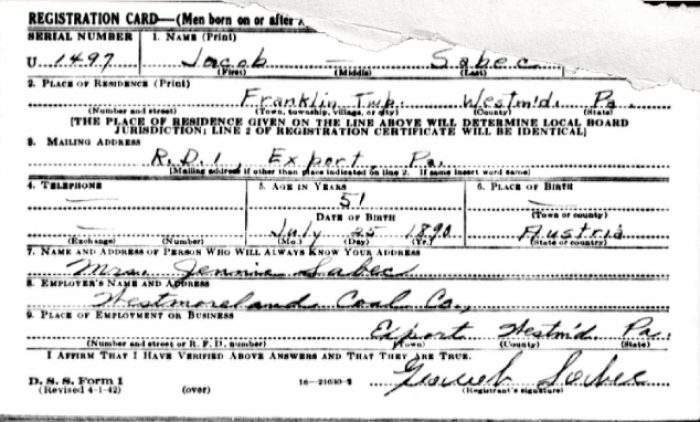 REGISTRATION CARD—(Men born on or after
SERIAL NUMBER 1. NAME (Print)
U 1497 Jacob — Sabec
(First) (Middle) (Last)
2. PLACE OF RESIDENCE (Print)
Franklin Twp. Westm'd. Pa.
(Number and street) (Town, township, village, or city) (County) (State)
[THE PLACE OF RESIDENCE GIVEN ON THE LINE ABOVE WILL DETERMINE LOCAL BOARD
JURISDICTION; LINE 2 OF REGISTRATION CERTIFICATE WILL BE IDENTICAL]
3. MAILING ADDRESS
R.D.1, Export, Pa.
[Mailing address if other than place indicated on line 2. If same insert word same]
4. TELEPHONE 5. AGE IN YEARS 6. PLACE OF BIRTH
— 51 —
DATE OF BIRTH (Town or county)
— July 25 1890 Austria
(Exchange) (Number) (Mo.) (Day) (Yr.) (State or country)
7. NAME AND ADDRESS OF PERSON WHO WILL ALWAYS KNOW YOUR ADDRESS
Mrs. Jennie Sabec
8. EMPLOYER'S NAME AND ADDRESS
Westmoreland Coal Co.,
9. PLACE OF EMPLOYMENT OR BUSINESS
Export Westm'd. Pa.
(Number and street or R. F. D. number) (Town) (County) (State)
I AFFIRM THAT I HAVE VERIFIED ABOVE ANSWERS AND THAT THEY ARE TRUE.
D. S. S. Form 1
(Revised 4-1-42) (over) 16—21630-2
(Registrant's signature)